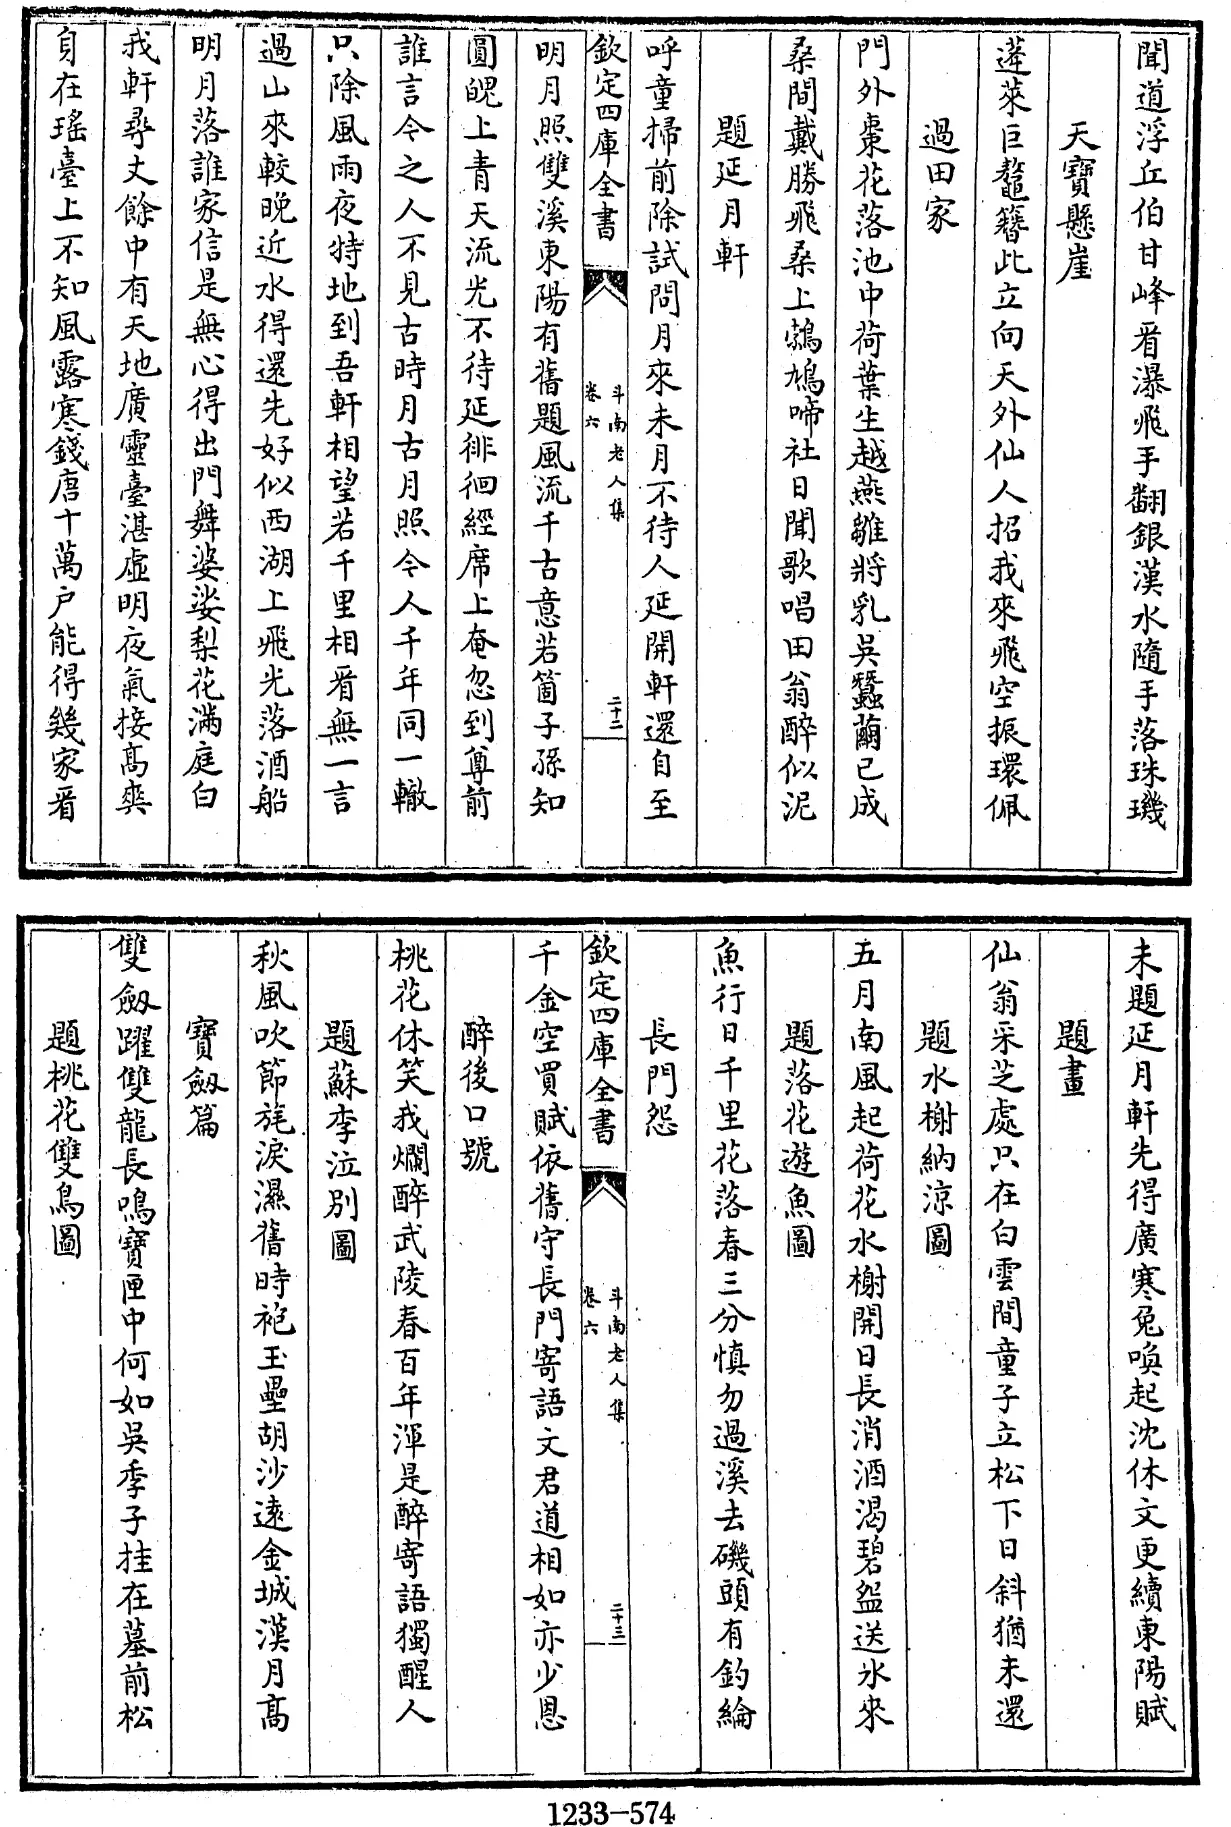 聞道浮丘伯甘峰看瀑飛手翻銀漢水隨手落珠璣
天寶懸崖
蓬萊巨鼇簪此立向天外仙人招我來飛空振環佩
過田家
門外棗花落池中荷葉生越燕雛將乳吳蠶繭已成
桑間戴勝飛桑上鵓鳩啼社日聞歌唱田翁醉似泥
題延月軒
呼童掃前除試問月來未月不待人延開軒還自至
欽定四庫全書
斗南老人集
卷六
二十二
明月照雙溪東陽有舊題風流千古意若箇子孫知
圓魄上青天流光不待延徘徊經席上奄忽到尊前
誰言今之人不見古時月古月照今人千年同一轍
只除風雨夜特地到吾軒相望若千里相看無一言
過山來較晚近水得還先好似西湖上飛光落酒船
明月落誰家信是無心得出門舞婆娑梨花滿庭白
我軒尋丈餘中有天地廣靈臺湛虛明夜氣接高爽
身在瑤臺上不知風露寒錢唐十萬戶能得幾家看
未題延月軒先得廣寒兔喚起沈休文更續東陽賦
題畫
仙翁采芝處只在白雲間童子立松下日斜猶未還
題水榭納涼圖
五月南風起荷花水榭開日長消酒渴碧盌送氷來
題落花遊魚圖
魚行日千里花落春三分慎勿過溪去磯頭有釣綸
長門怨
欽定四庫全書
斗南老人集
卷六
二十三
千金空買賦依舊守長門寄語文君道相如亦少恩
醉後口號
桃花休笑我爛醉武陵春百年渾是醉寄語獨醒人
題蘇李泣別圖
秋風吹節旄淚濕舊時袍玉壘胡沙遠金城漢月高
寶劔篇
雙劔躍雙龍長鳴寶匣中何如吳季子挂在墓前松
題桃花雙鳥圖
1233-574